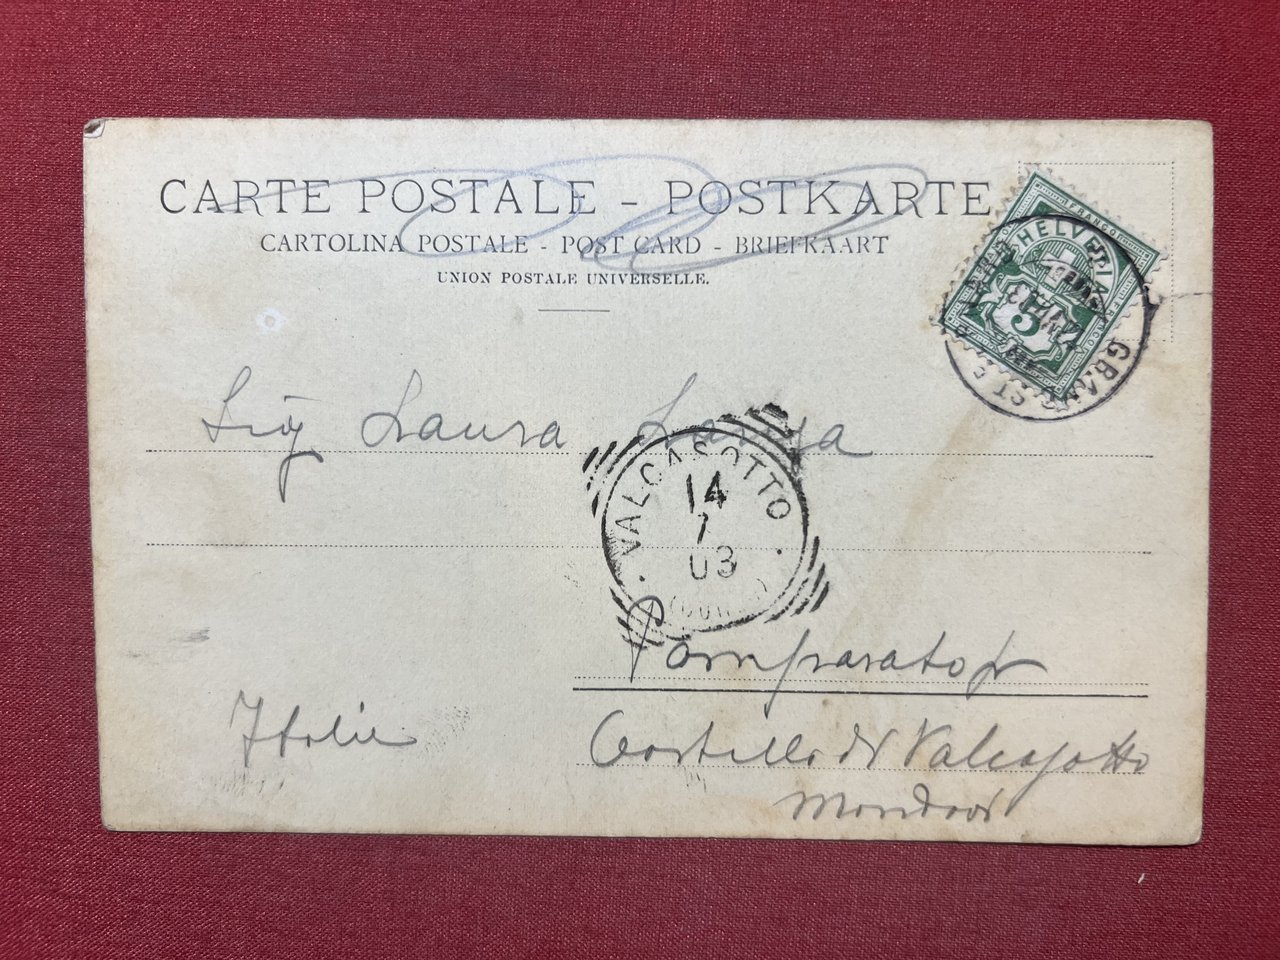 CARTE POSTALE - POSTKARTE
CARTOLINA POSTALE - POST CARD - BRIEFKAART
UNION POSTALE UNIVERSELLE.
FRANCO
HELVETIA
FRANCO
5
GRAND ST BERNARD
Sig Laura
VALCASOTTO
14
7
03
Pamparato
Italie
Castello di Valcasotto
Mondovi